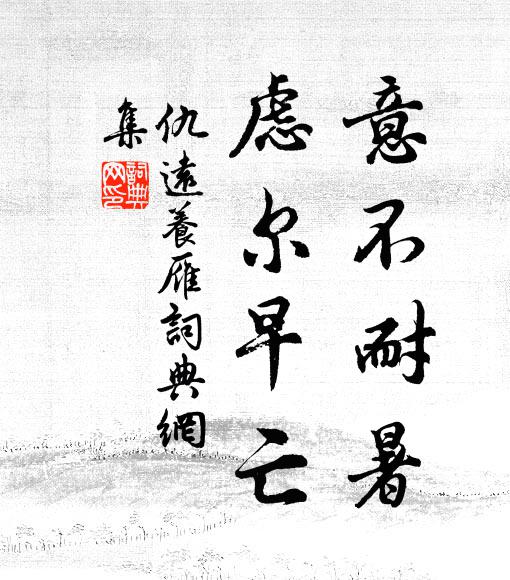 意不耐暑
虑尔早亡
仇遠養雁詞典網
集
詞典
网印